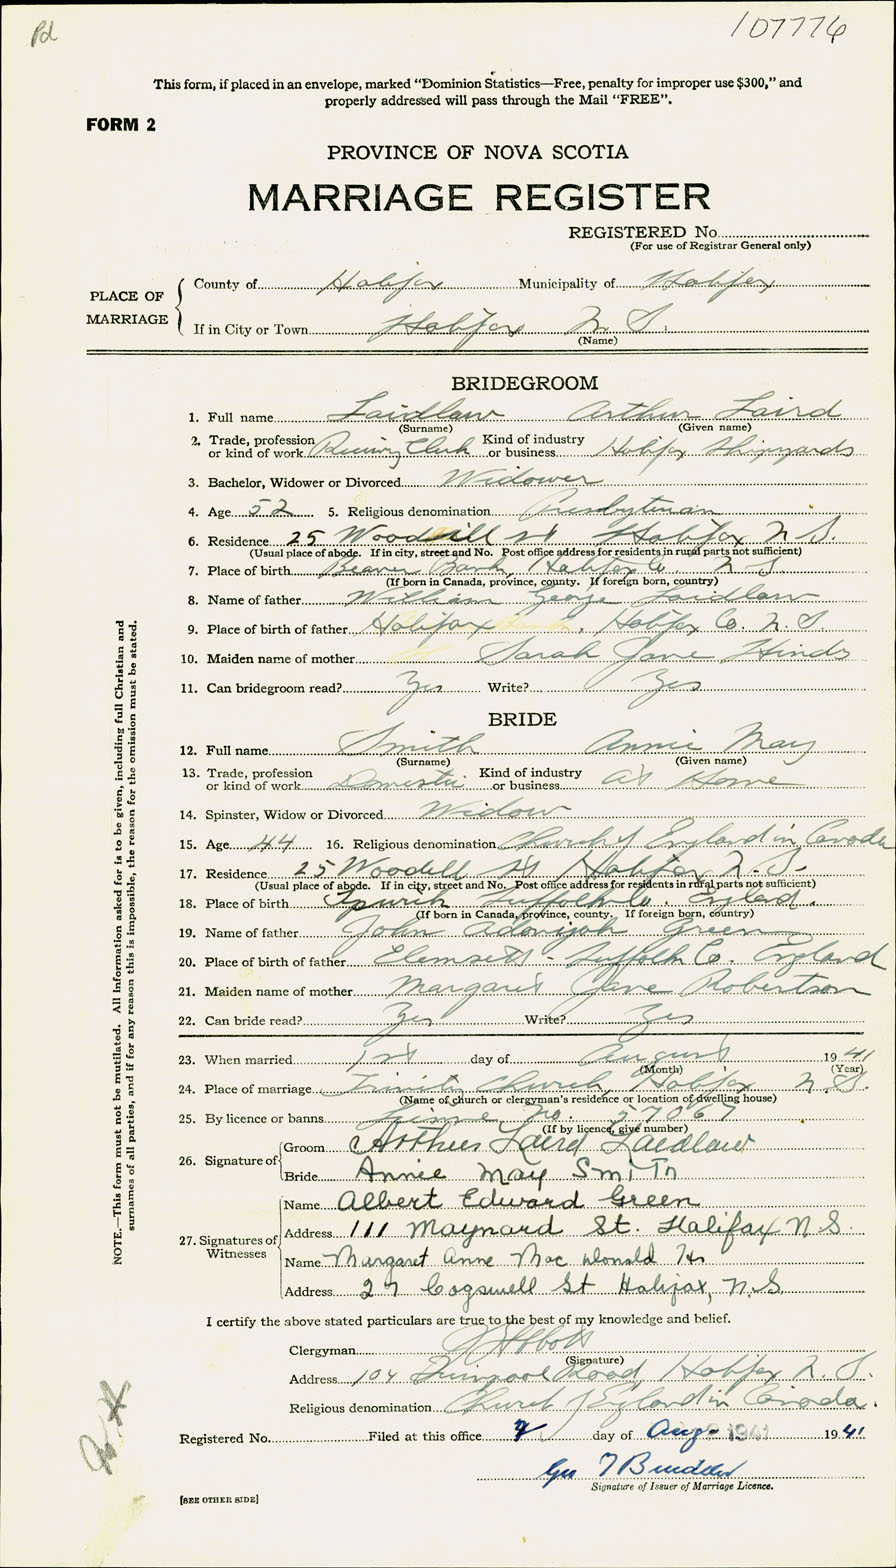 Pd
107776
This form, if placed in an envelope, marked “Dominion Statistics—Free, penalty for improper use $300,” and
properly addressed will pass through the Mail “FREE”.
FORM 2
PROVINCE OF NOVA SCOTIA
MARRIAGE REGISTER
REGISTERED No.
(For use of Registrar General only)
PLACE OF MARRIAGE
County of Halifax Municipality of Halifax
If in City or Town Halifax N. S.
(Name)
BRIDEGROOM
1. Full name Laidlaw Arthur Laird
(Surname) (Given name)
2. Trade, profession or kind of work Clerk Kind of industry or business Halifax Shipyards
3. Bachelor, Widower or Divorced Widower
4. Age 52 5. Religious denomination Presbyterian
6. Residence 25 Woodill St Halifax N. S.
(Usual place of abode. If in city, street and No. Post office address for residents in rural parts not sufficient)
7. Place of birth Beaver Bank, Halifax Co. N S
(If born in Canada, province, county. If foreign born, country)
8. Name of father William George Laidlaw
9. Place of birth of father Halifax, Halifax Co. N. S.
10. Maiden name of mother Sarah Jane Hinds
11. Can bridegroom read? Yes Write? Yes
BRIDE
12. Full name Smith Annie May
(Surname) (Given name)
13. Trade, profession or kind of work Domestic Kind of industry or business at Home
14. Spinster, Widow or Divorced Widow
15. Age 44 16. Religious denomination Church of England in Canada
17. Residence 25 Woodill St Halifax N. S.
(Usual place of abode. If in city, street and No. Post office address for residents in rural parts not sufficient)
18. Place of birth Ipswich Suffolk Co. England.
(If born in Canada, province, county. If foreign born, country)
19. Name of father John Adonijah Green
20. Place of birth of father Elmsett - Suffolk Co. England
21. Maiden name of mother Margaret Jane Robertson
22. Can bride read? Yes Write? Yes
23. When married 1st day of August 1941
(Month) (Year)
24. Place of marriage Trinity Church, Halifax N. S.
(Name of church or clergyman's residence or location of dwelling house)
25. By licence or banns License No. 57067
(If by licence, give number)
26. Signature of
Groom Arthur Laird Laidlaw
Bride Annie May Smith
27. Signatures of Witnesses
Name Albert Edward Green
Address 111 Maynard St. Halifax N. S.
Name Margaret Anne Mac Donald
Address 27 Cogswell St Halifax, N. S
I certify the above stated particulars are true to the best of my knowledge and belief.
Clergyman Abbott
(Signature)
Address 104 Quinpool Road, Halifax N. S.
Religious denomination Church of England in Canada.
Registered No. Filed at this office 2 day of Aug- 1941 1941
Signature of Issuer of Marriage Licence.
[SEE OTHER SIDE]
NOTE.—This form must not be mutilated. All information asked for is to be given, including full Christian and
surnames of all parties, and if for any reason this is impossible, the reason for the omission must be stated.